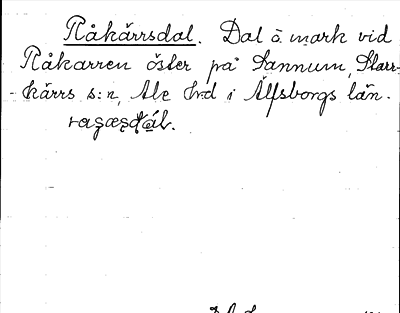 Råkärrsdal. Dal å mark vid
Råkärren öster på Sannum, Starr-
-kärrs s:n, Ale hd i Älfsborgs län.